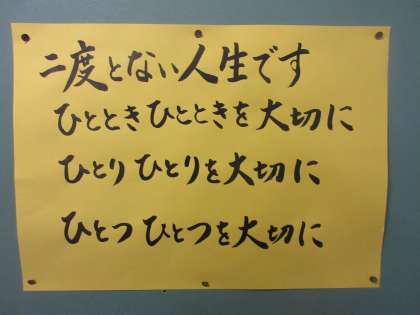 二度とない人生です
ひとときひとときを大切に
ひとりひとりを大切に
ひとつひとつを大切に